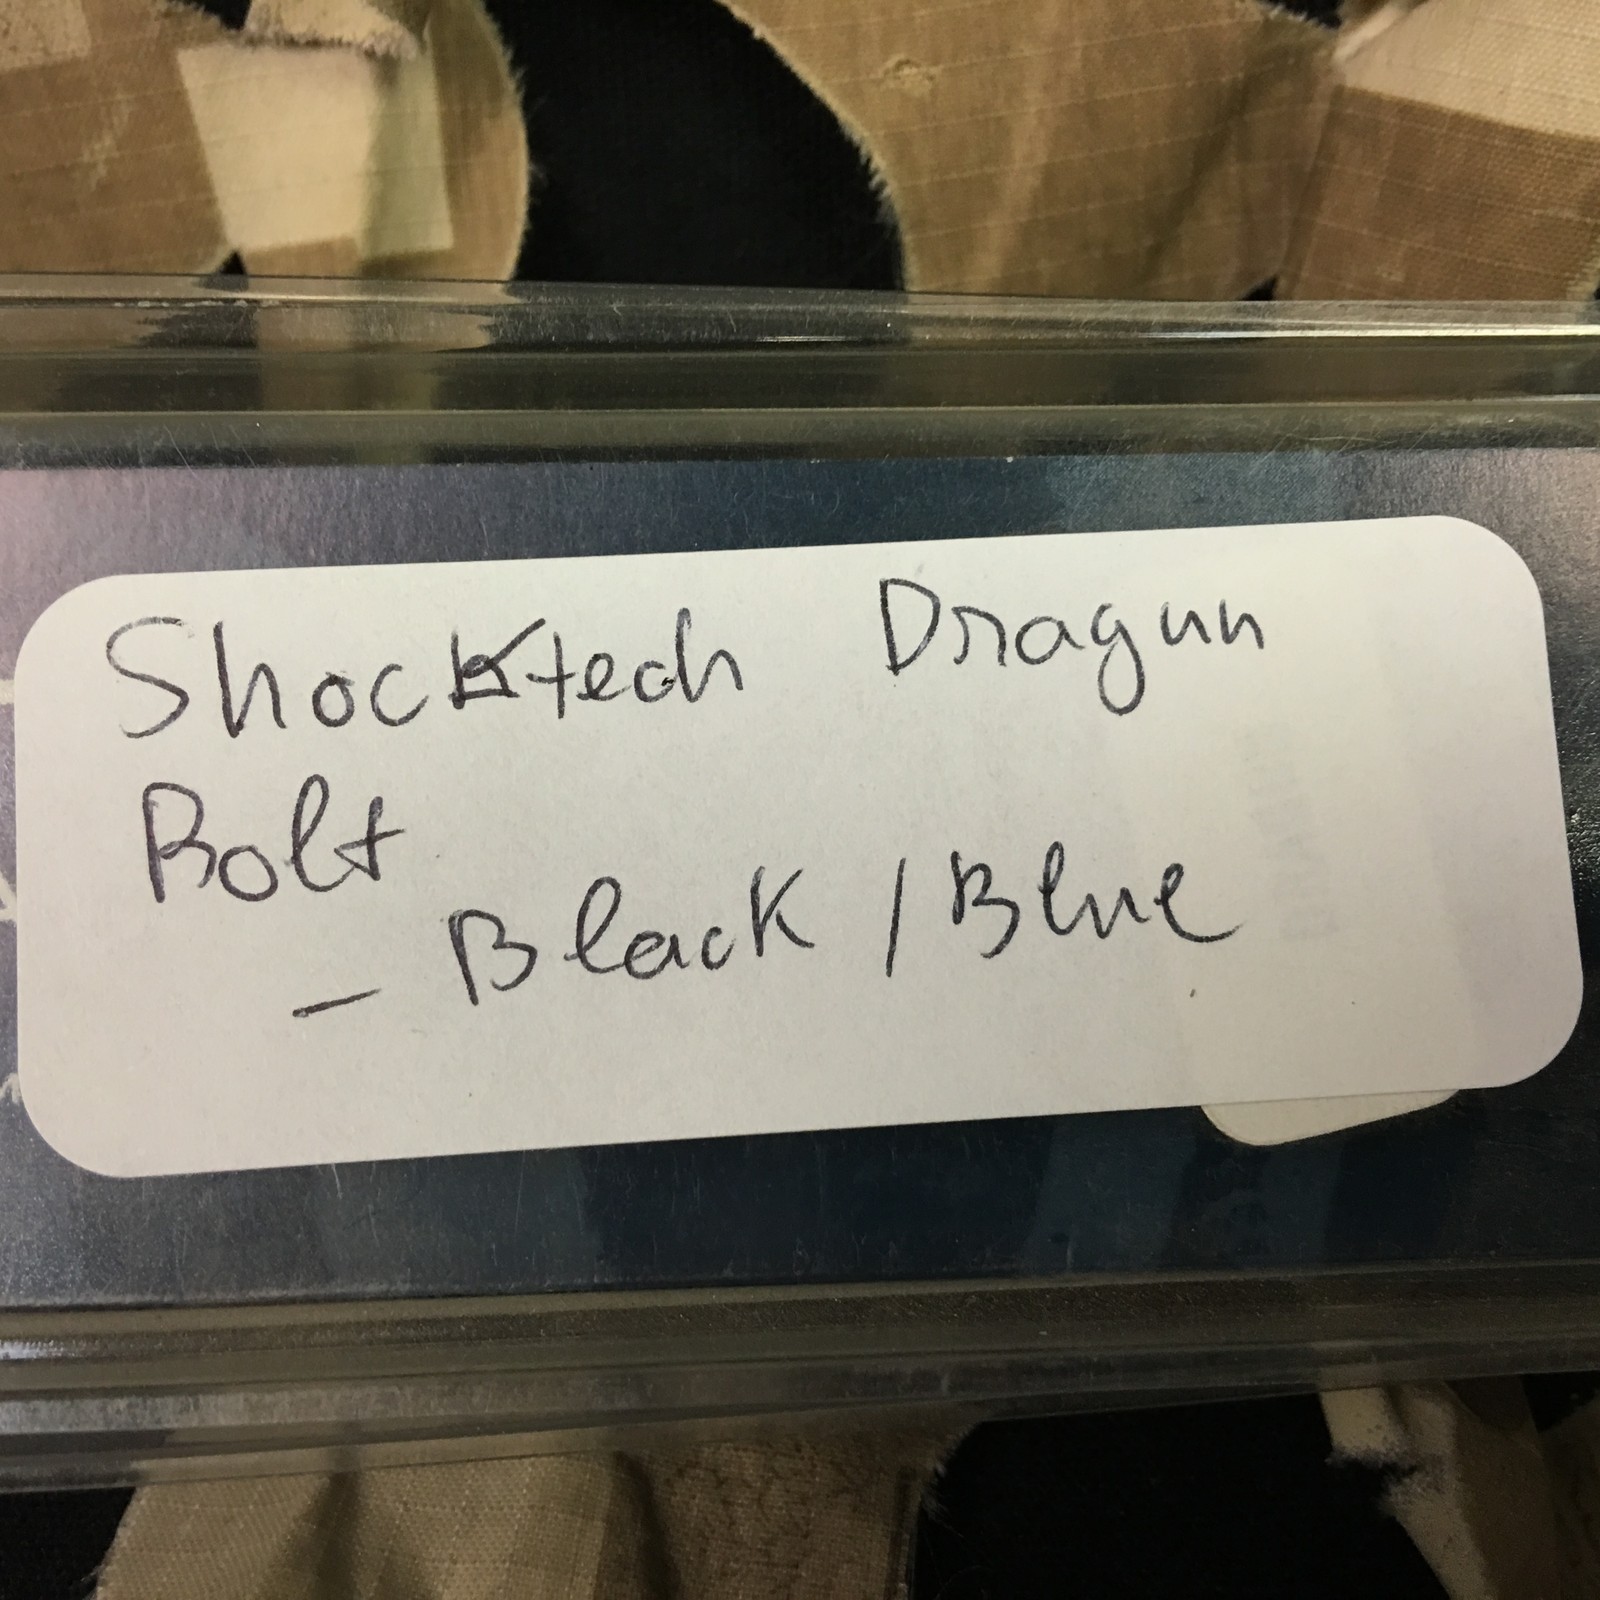 Shocktech Dragun
Bolt
- Black / Blue